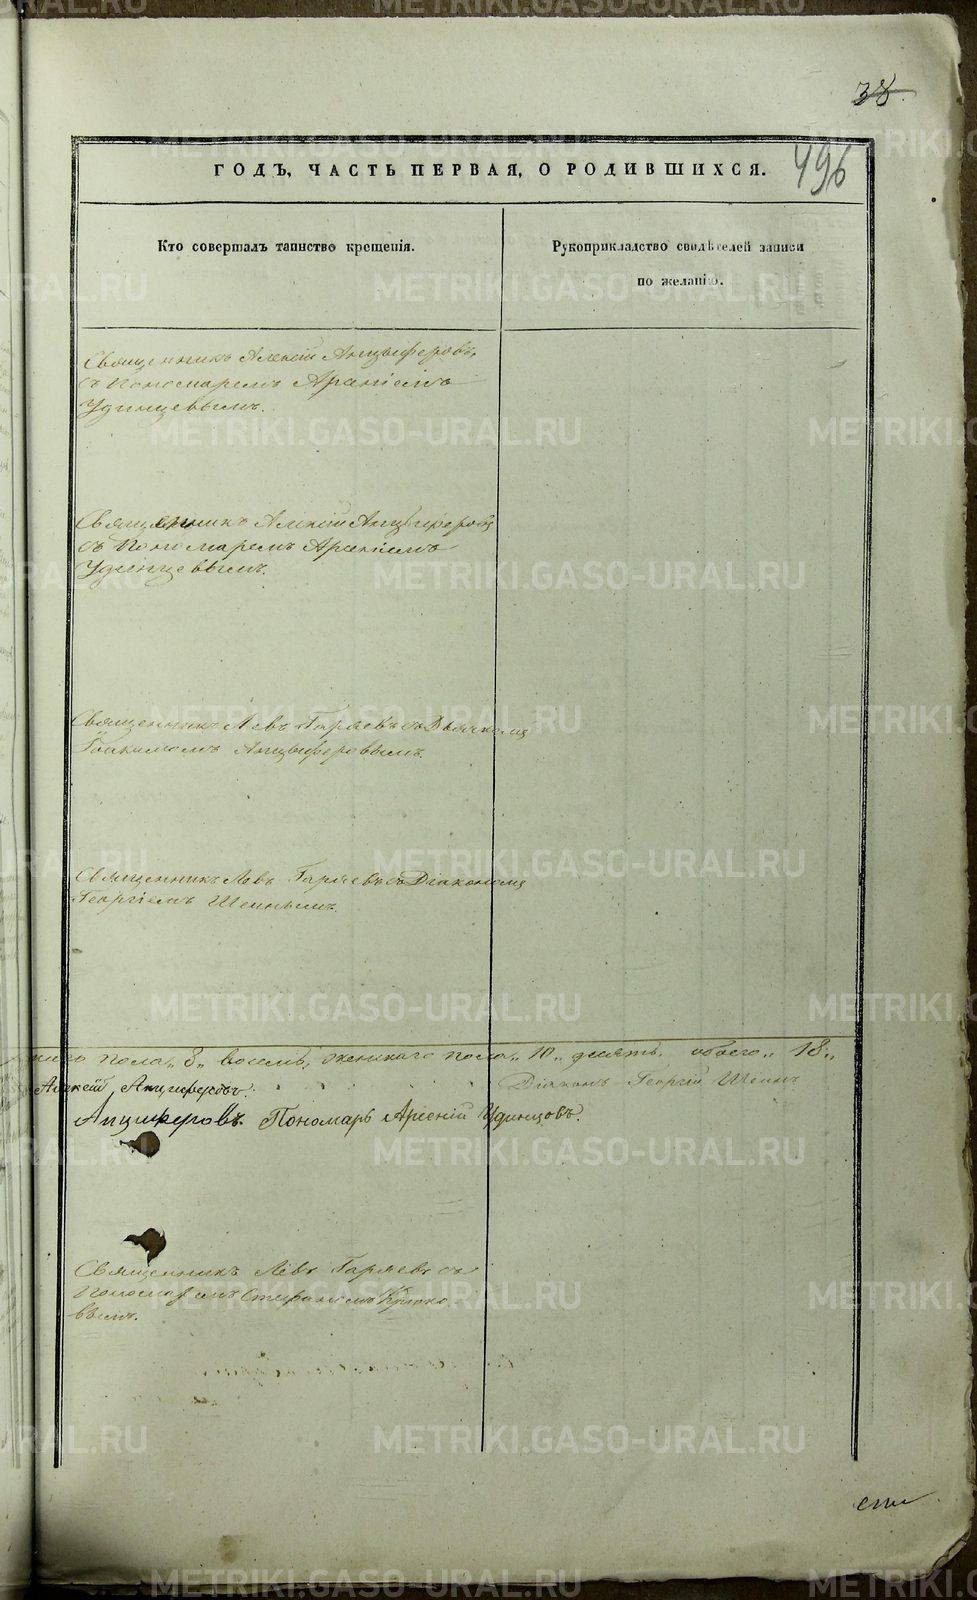 38.
496
ГОДЪ, ЧАСТЬ ПЕРВАЯ, О РОДИВШИХСЯ.
Кто совершалъ таинство крещенія.
Рукоприкладство свидѣтелей записи
по желанію.
Священникъ Алексій Анцыферовъ,
съ Пономаремъ Арсеніемъ
Удинцевымъ.
Священникъ Алексій Анцыферовъ
съ Пономаремъ Арсеніемъ
Удинцевымъ.
Священникъ Левъ Гаряевъ съ Дьячкомъ
Іоакимомъ Анцыферовымъ.
Священникъ Левъ Гаряевъ съ Діакономъ
Георгіемъ Шеинымъ.
пола „8„ восемь, женскаго пола „10„ десять, обоего „18„
Алексій Анциферовъ. Діаконъ Георгій Шеинъ
Анциферовъ. Пономарь Арсеній Удинцовъ.
Священникъ Левъ Гаряевъ съ
Пономаремъ Стефаномъ
вымъ.
METRIKI.GASO-URAL.RU